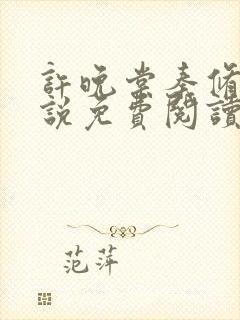 許晚棠秦脩
說免費閱讀
范萍